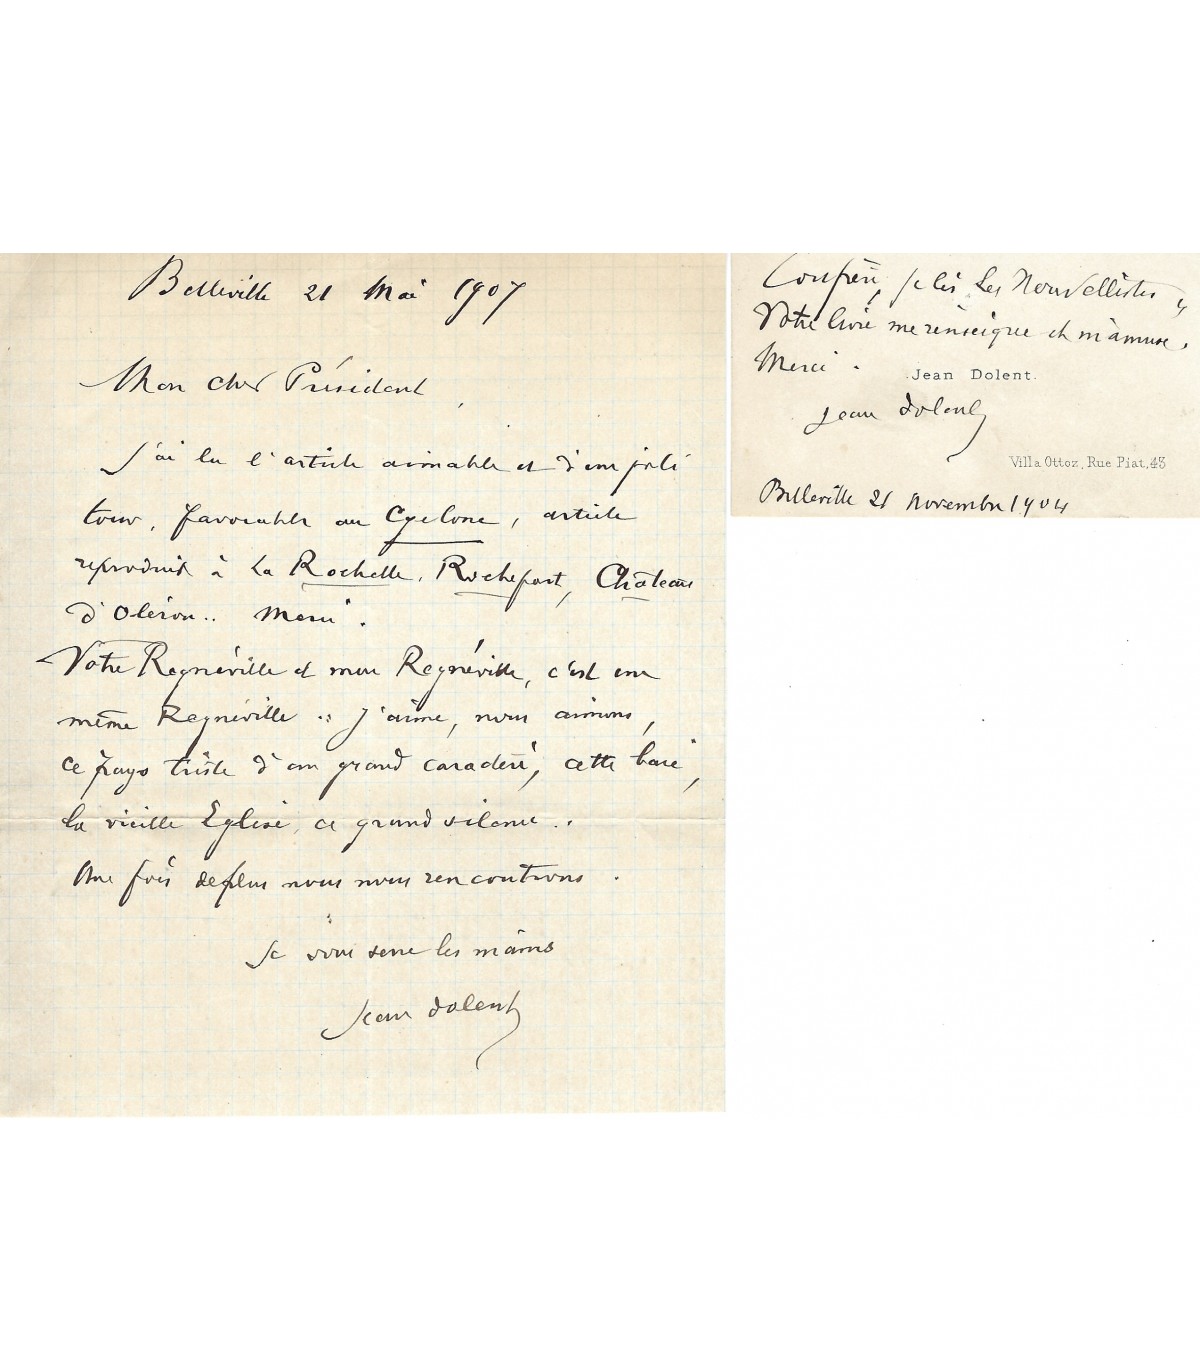 Belleville 21 Mai 1907
Mon cher Président,
J'ai lu l'article aimable et d'un joli
tour, favorable au Cyclone, article
reproduit à La Rochelle, Rochefort, Château
d'Oléron.. Merci.
Votre Regnéville et mon Regnéville, c'est un
même Regnéville.. J'aime, nous aimons,
ce pays triste d'un grand caractère, cette baie,
la vieille Eglise, ce grand silence..
Une fois de plus nous nous rencontrons.
Je vous serre les mains
Jean Dolent
Confrère, Je lis Les Nouvellistes,
Votre livre me renseigne et m'amuse.
Merci.
Jean Dolent.
Jean Dolent
Villa Ottoz, Rue Piat, 43
Belleville 21 novembre 1904